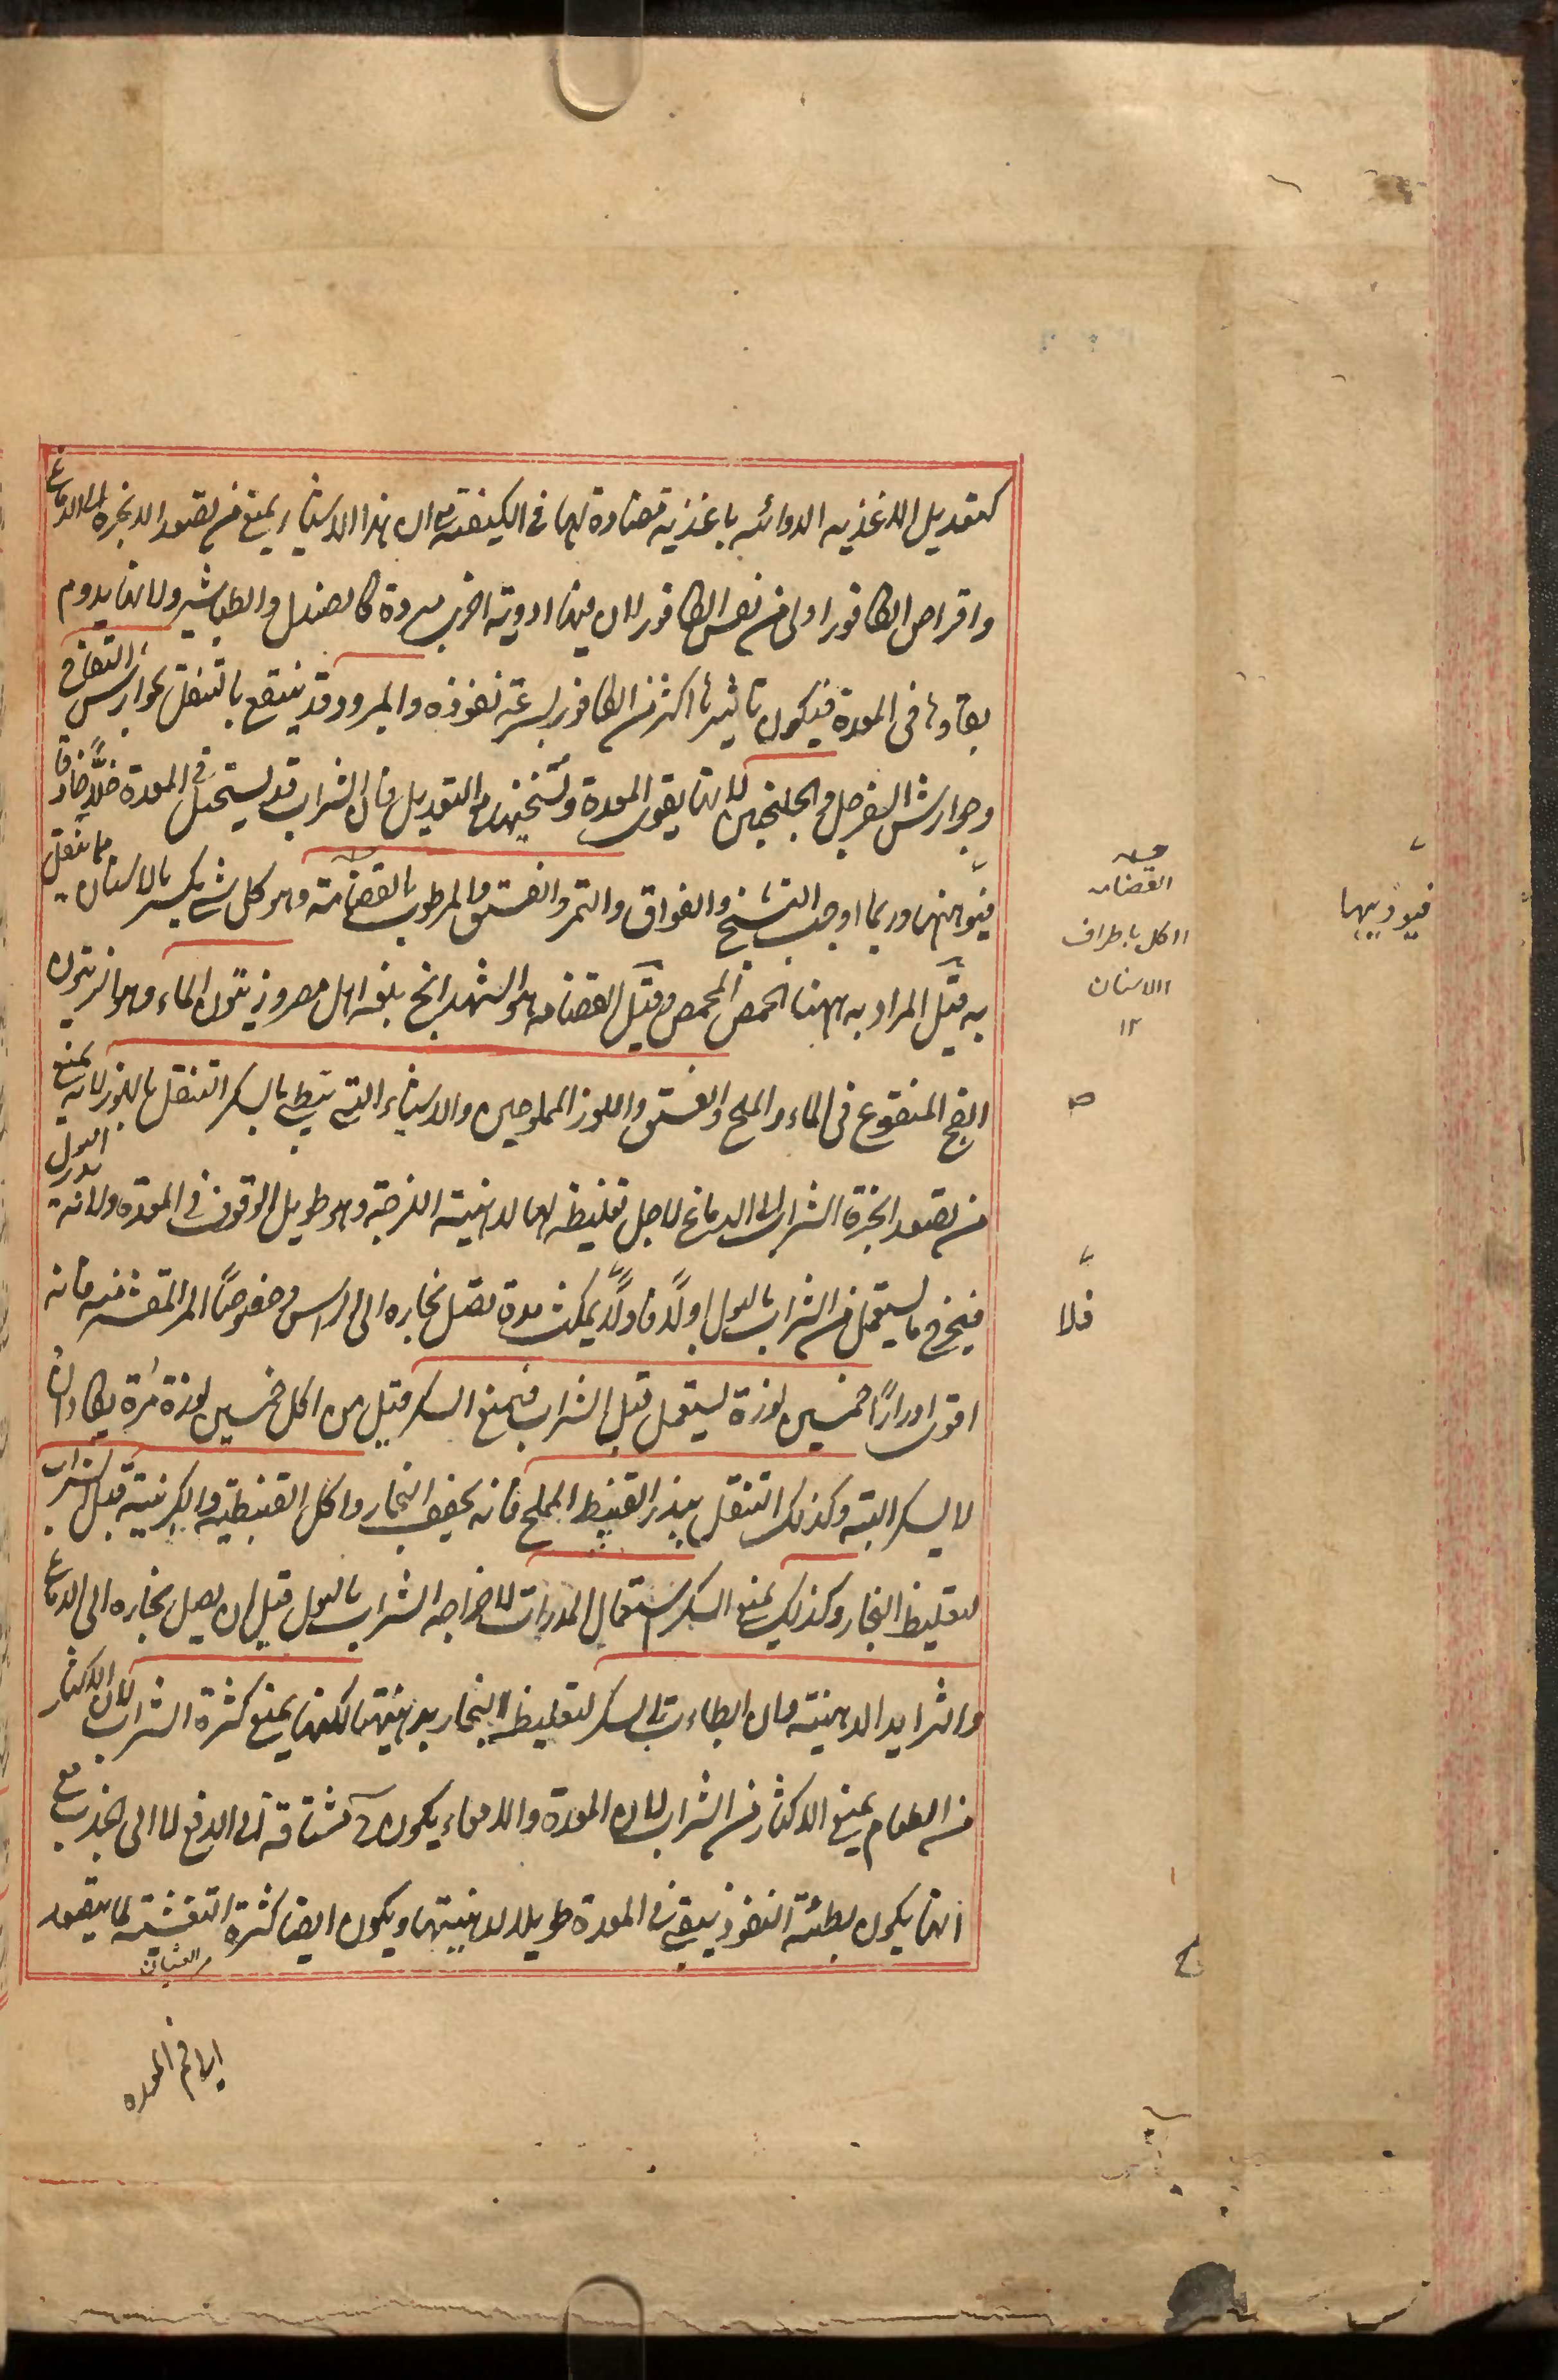 كتعديل الاغذيه الدوائيه باغذية مضادة لها فى الكيفية مع ان هذا الاشياء يمنع من تصعد الابخرة الى الدماغ
واقراص الكافور اولى من نفس الكافور لان فيها ادوية اخرى مبردة كالصندل والطباشير ولانها يدوم
بقاوها فى المعدة فيكون تاثيرها اكثر من الكافور لسرعة نفوذه والمبرود قد ينتفع بالتنقل بجوارش التفاح
وجوارش السفرجل والجلنجبين لانها يقوى المعدة وتسخنها مع التعديل فان الشراب قد يستحيل فى المعدة خلًّا حاذقا
فيوهنها وربما اوجب التشنج والفواق والتمر والفستق والمرطوب بالقضامة وهو كل شى يكسر بالاسنان مما يتنقل
به قيل المراد به ههنا الحمص المحمص وقيل القضامه هو الشهدانج بلغة اهل مصر وزيتون الماء وهو الزيتون
الفج المنقوع فى الماء والملح والفستق واللوز المملوحين والاشياء التى تبطى بالسكر التنقل باللوز لانه يمنع
من تصعد ابخرة الشراب الى الدماغ لاجل تغليظه لها لدهنيته اللزجة وهو طويل الوقوف فى المعدة ولانه يدر البول
فيخرج ما يستعمل من الشراب بالبول اولًا فاولًا يمكث مدة تصل بخاره الى الراس وخصوصًا المر المقشر منه فانه
اقوى ادرارًا خمسين لوزة يستعمل قبل الشراب فيمنع السكر قيل من اكل خمسين لوزة مرة يكاد ان
لا يسكر البتة وكذلك التنقل ببذر القنبيط المملح فانه يجفف البخار واكل القنبيطية والكرنبية قبل الشراب
لتغليظ البخار وكذلك يمنع السكر استعمال المدرات لاخراجه الشراب بالبول قبل ان يصل بخاره الى الدماغ
والثرايد الدهنية فان ابطاءت بالسكر لتغليظ البخار بدهنيتها لكنها يمنع كثرة الشراب لان الاكثار
من الطعام يمنع الاكثار من الشراب لان المعدة والامعاء يكون مشتاقة الى الدفع لا الى الجذب مع
انها يكون بطئة النفوذ يبقى فى المعدة طويلا لدهنيتها ويكون ايضا كثرة التغشية لما يتصعد
من الغثيان
الى فم المعده
القضامه
الاكل باطراف
الاسنان
١٢
فيوذيها
فلا